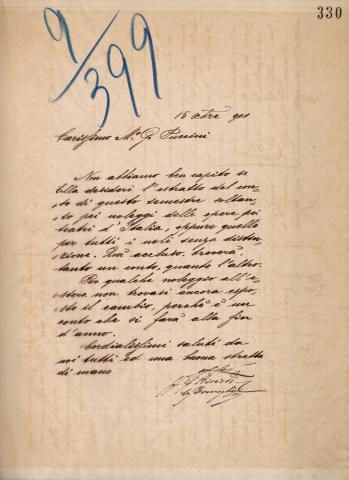 330
9/399
15 8bre 901
Carissimo Mo. G. Puccini
Non abbiamo ben capito se
Ella desideri l'estratto del con-
to di questo semestre soltan-
to pei noleggi delle opere pei
teatri d'Italia, oppure quello
per tutti i noli senza distin-
zione. Qui accluso, troverà
tanto un conto, quanto l'altro.
Per qualche noleggio all'e-
stero non trovasi ancora espo-
sto il cambio, perchè è un
conto che si farà alla fin
d'anno.
Cordialissimi saluti da
noi tutti ed una buona stretta
di mano
G. Ricordi